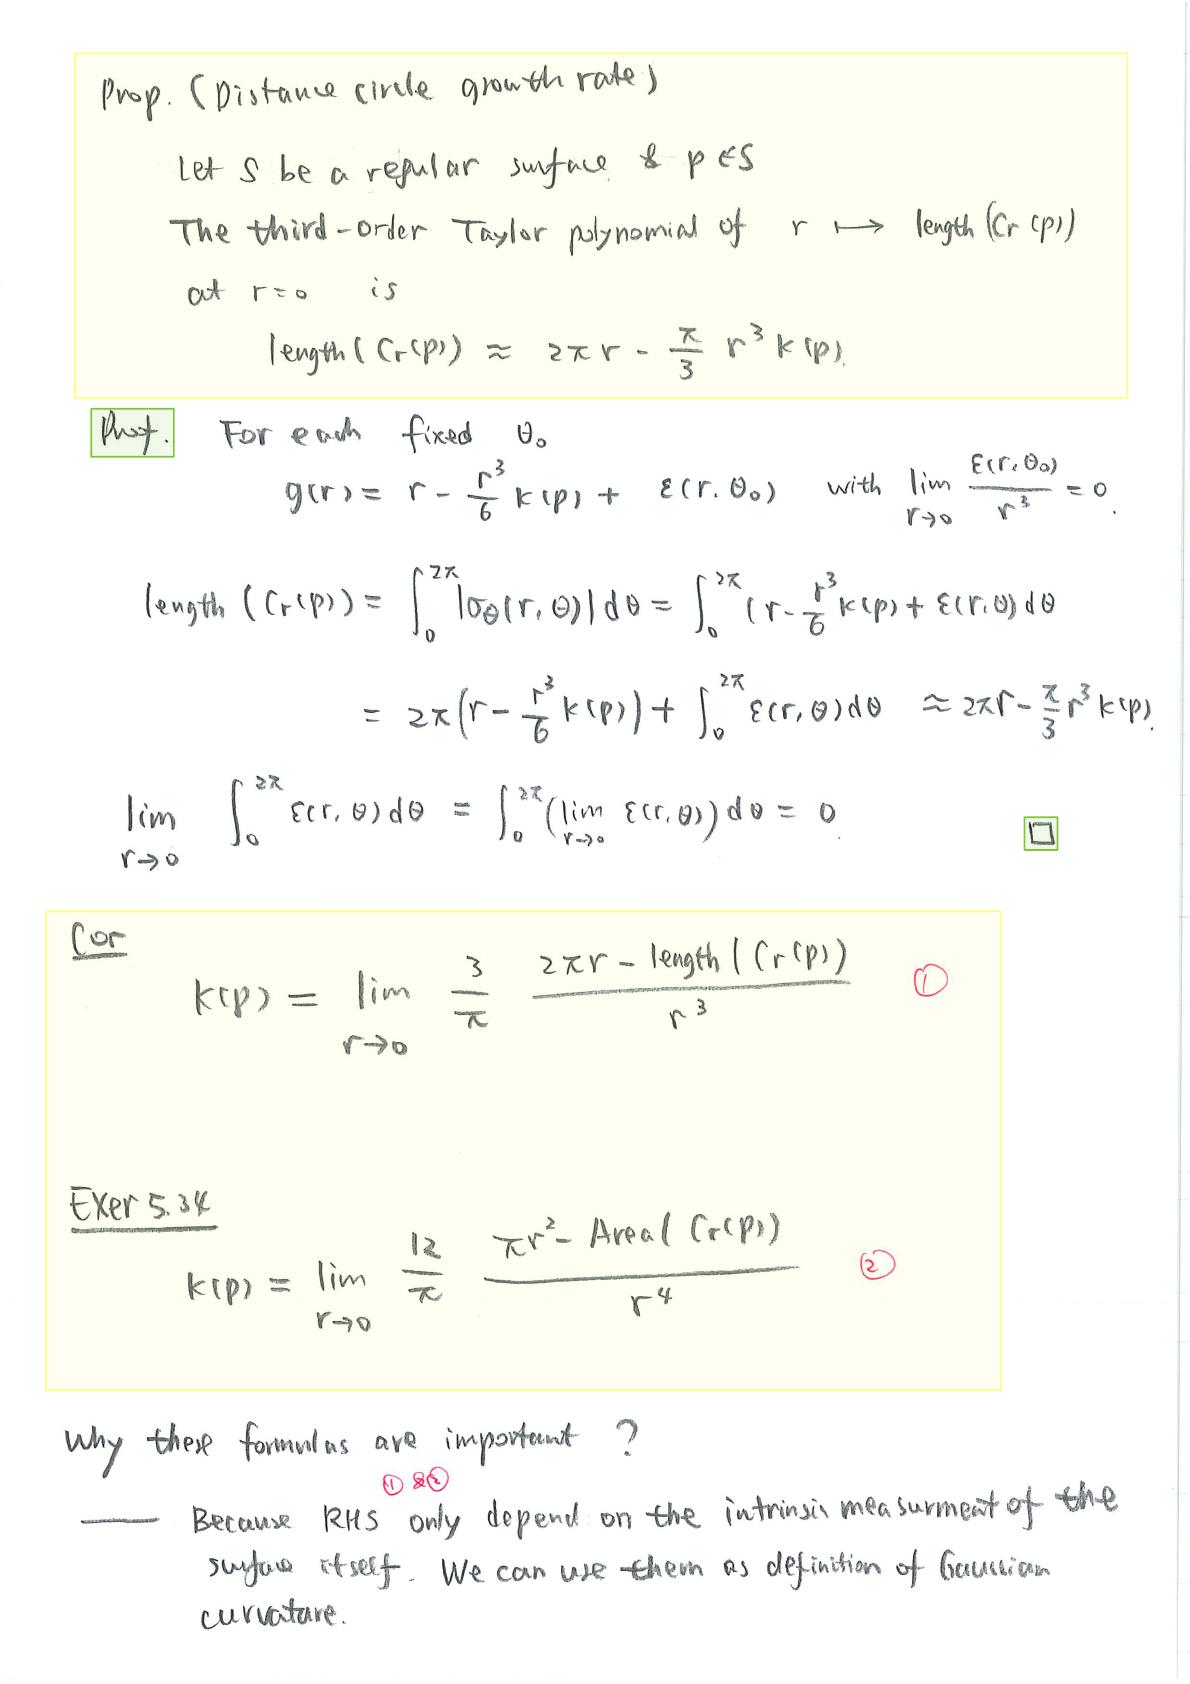 Prop. (Distance circle growth rate)
Let S be a regular surface & p∈S
The third-order Taylor polynomial of r ↦ length (Cr(p))
at r=0 is
length (Cr(p)) ≈ 2πr - π/3 r³ K(p).
Proof. For each fixed θ₀
g(r) = r - r³/6 K(p) + ε(r, θ₀) with lim r→0 ε(r, θ₀)/r³ = 0.
length (Cr(p)) = ∫₀^2π |σθ(r, θ)| dθ = ∫₀^2π (r - r³/6 K(p) + ε(r, θ) dθ
= 2π(r - r³/6 K(p)) + ∫₀^2π ε(r, θ) dθ ≈ 2πr - π/3 r³ K(p).
lim r→0 ∫₀^2π ε(r, θ) dθ = ∫₀^2π (lim r→0 ε(r, θ)) dθ = 0 □
Cor
K(p) = lim r→0 3/π (2πr - length (Cr(p)))/r³ ①
Exer 5.34
K(p) = lim r→0 12/π (πr² - Area (Cr(p)))/r⁴ ②
Why these formulas are important ?
① & ②
— Because RHS only depend on the intrinsic measurment of the
surface itself. We can use them as definition of Gaussian
curvature.